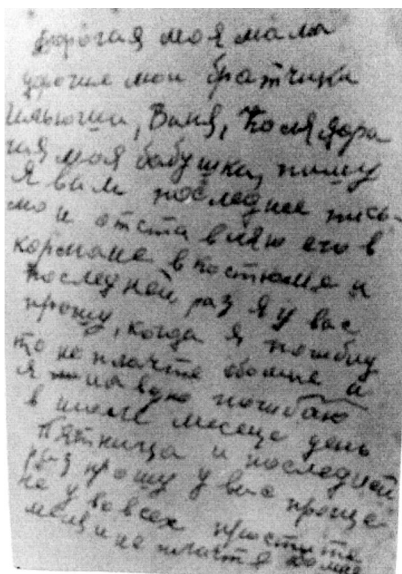 дорогая моя мама
дорогие мои братчики
Илююши, Ваня, Коля дора
гая моя бабушка, пишу
я вам последнее пись-
мо и отставляю его в
кормане в костюме и
последней раз я у вас
прошу, когда я погибну
то не плачте обомне а
я погибаю
в июле месеце день
пятница и последней
раз прошу у вас проще
не у вовсех простите
меня и не плачте